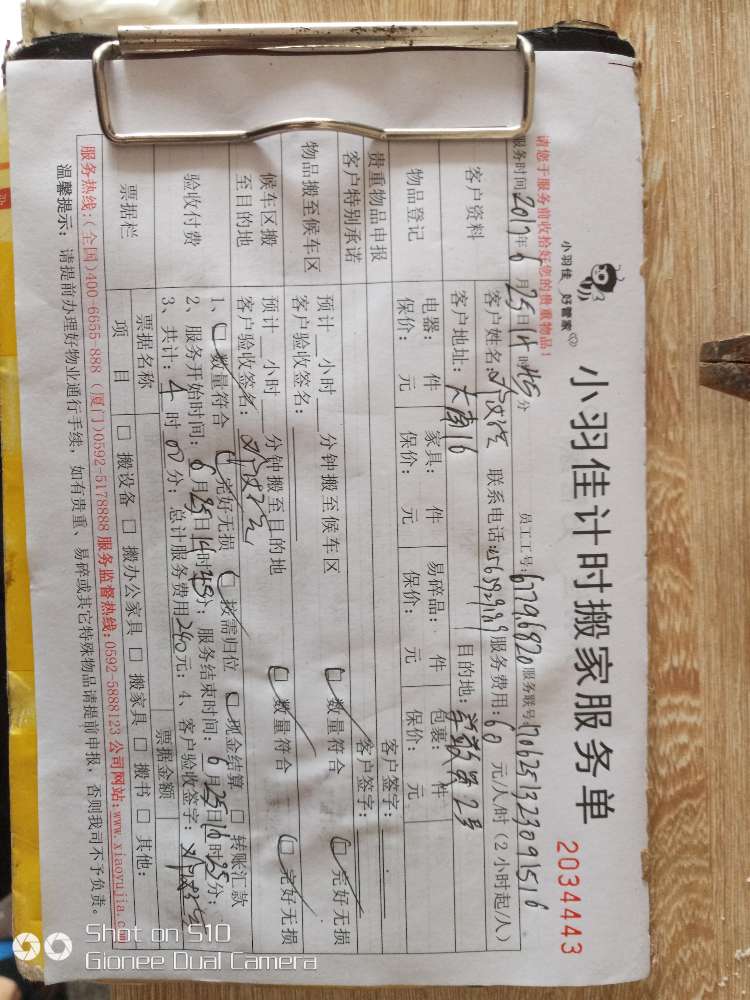 小羽佳 好管家
小羽佳计时搬家服务单
2034443
请您于服务前收拾好您的贵重物品!
员工工号: 服务联号:
服务时间 2017年6月25日14时45分
客户资料
客户姓名: 联系电话: 服务费用:60 元/人/时(2小时起/人)
客户地址:大南16 目的地:
物品登记
电器: 件 家具: 件 易碎品: 件 包裹: 件
保价: 元 保价: 元 保价: 元 保价: 元
贵重物品申报 客户签字:
客户特别承诺 客户签字:
物品搬至候车区
预计 小时 分钟搬至候车区 数量符合 完好无损
客户验收签名:
候车区搬至目的地
预计 小时 分钟搬至目的地 数量符合 完好无损
客户验收签名:
验收付费
1、 数量符合 完好无损 按需归位 现金结算 转账汇款
2、服务开始时间:6月25日14时45分; 服务结束时间:6月25日16时35分;
3、共计:4时00分; 总计服务费用240元; 4、客户验收签字:
票据栏
票据名称 票据金额
项目 □ 搬设备 □ 搬办公家具 □ 搬家具 □ 搬书 □ 其他:
服务热线:(全国)400-6655-888 (厦门)0592-5178888 服务监督热线:0592-5888123 公司网站:www.xiaoyujia.com
温馨提示: 请提前办理好物业通行手续,如有贵重、易碎或其它特殊物品请提前申报,否则我司不予负责。
Shot on S10
Gionee Dual Camera